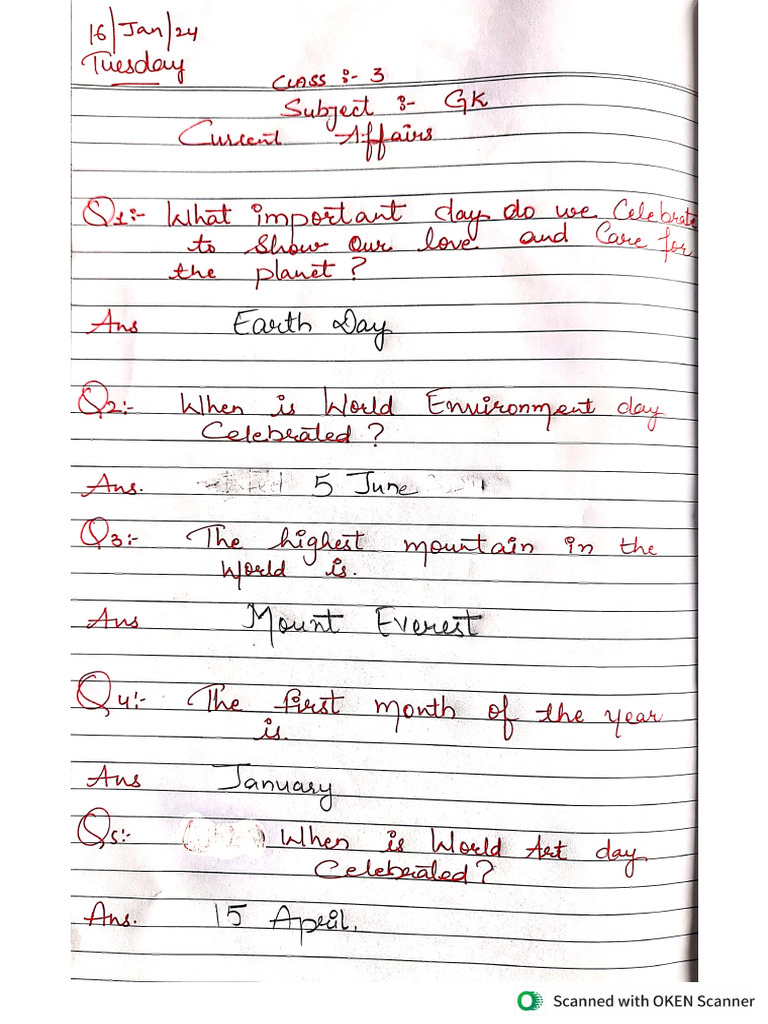 16/Jan/24
Tuesday
CLASS :- 3
Subject :- GK
Current Affairs
Q1:- What important day do we Celebrate
to show our love and Care for
the planet?
Ans Earth Day
Q2:- When is World Environment day
Celebrated?
Ans. 5 June
Q3:- The highest mountain in the
world is.
Ans Mount Everest
Q4:- The first month of the year
is.
Ans January
Q5:- When is World Art day
Celebrated?
Ans. 15 April.
Scanned with OKEN Scanner